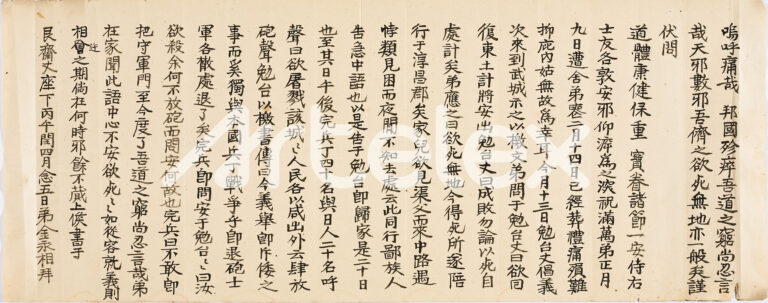 嗚呼痛哉 邦國殄瘁吾道之窮尚忍言
哉天邪數邪吾儕之欲死無地亦一般矣謹
伏問
道體康健保重 寶眷諸節一安侍右
士友各敦安邪仰溸爲之滾祝滿萬弟正月
九日遭舍弟喪二月十四日已經葬禮痛殞難
抑庇內姑無故爲幸耳今月十三日勉台丈倡義
次來到武城示之以檄文弟問于勉台丈曰欲回
復東土計將安出勉台丈曰成敗勿論以死自
處計矣弟應之曰欲死無地今得死所遂陪
行于淳昌郡矣家兒欲見渠父而來中路遇
悖類見困而夜間不知去處云此同行鄙族人
告急中語也以是告于勉台卽歸家是二十日
也至其日午後完兵丁四十名與日人二十名呼
聲曰欲屠戮該城〻人民各以咸出外云肆放
砲聲勉台以檄書傳曰今義舉卽斥倭之
事而奚獨與本國兵丁戰爭乎卽退砲士
軍各散處退了矣完兵卽問安于勉台〻曰汝
欲殺余何不放砲而問安何故也完兵曰不敢卽
把守軍門至今度了吾道之窮尚忍言哉弟
在家聞此語中心不安欲死〻〻如從容就義則
相會之期倘在何時邪餘不蔵上候書于
艮齋丈座下丙午閏四月念五日弟金永相拜
Artelex